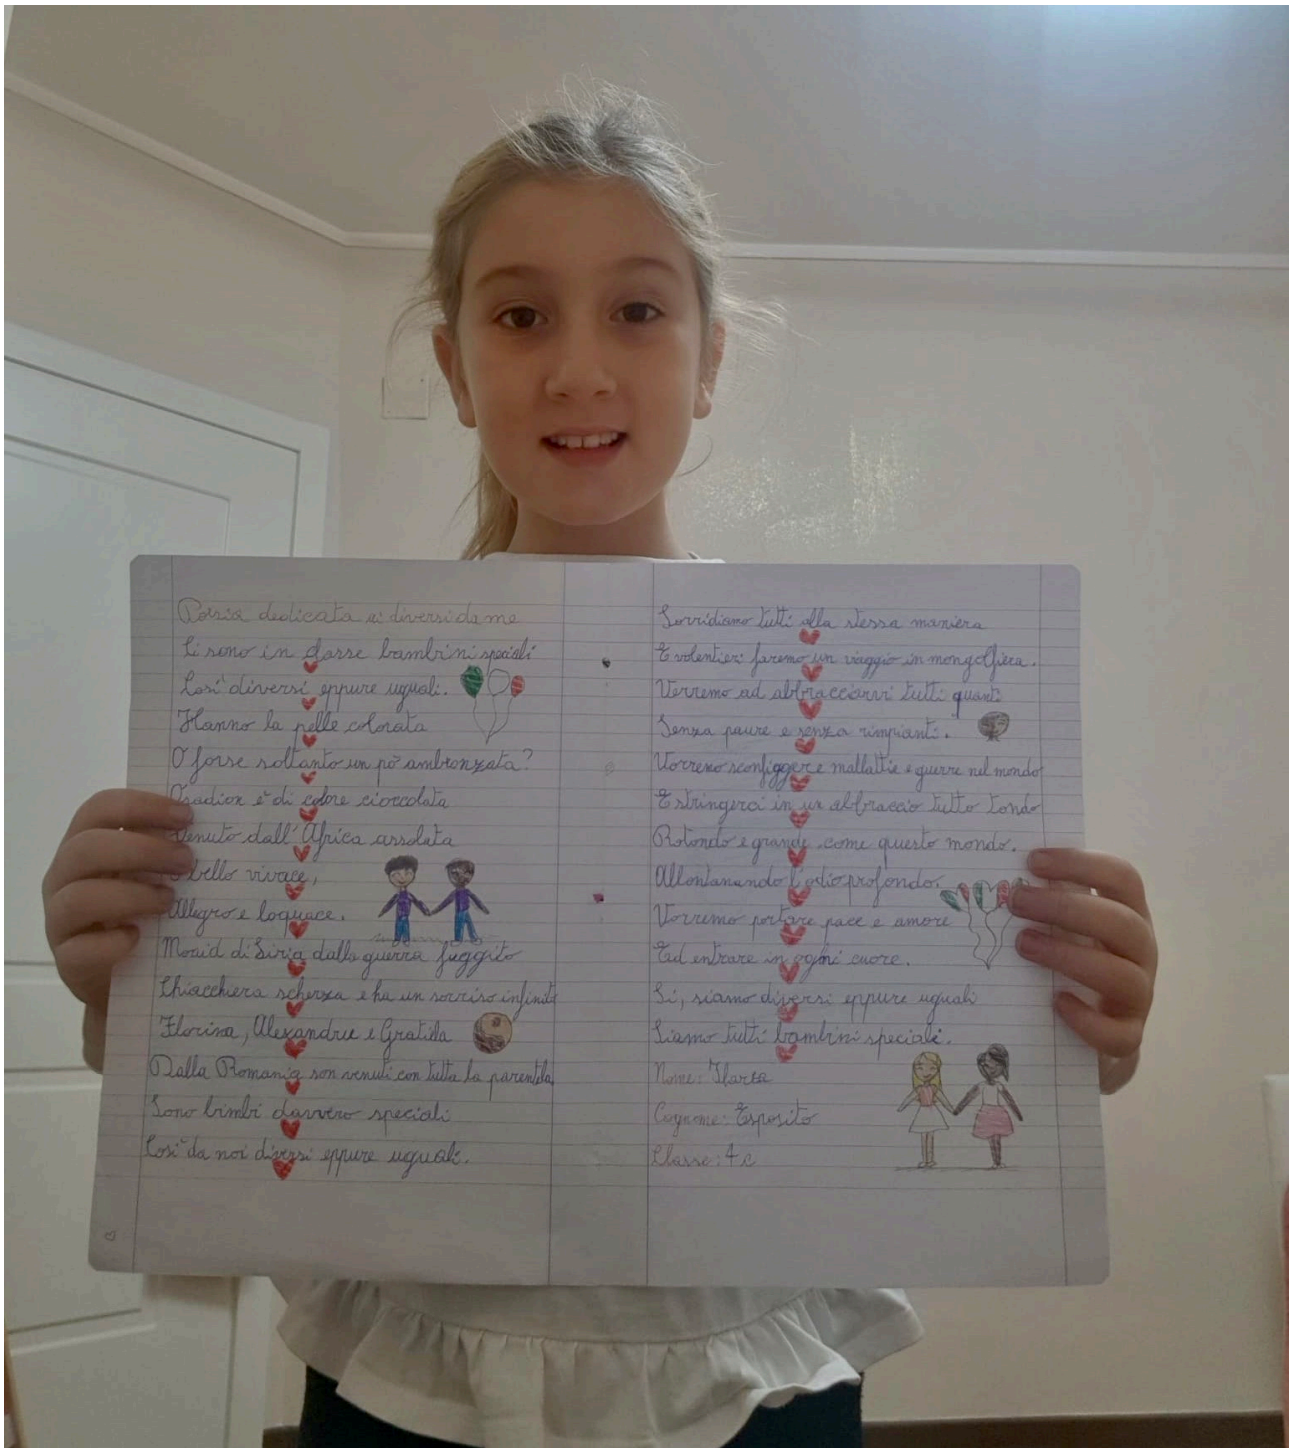 Poesia dedicata ai diversi da me
Ci sono in classe bambini speciali
Così diversi eppure uguali.
Hanno la pelle colorata
O forse soltanto un pò ambronzata?
è di colore cioccolata
Venuto dall'Africa assolata
È bello vivace,
Allegro e loquace.
Moaid di Siria dalla guerra fuggito
Chiacchiera scherza e ha un sorriso infinito
Florina, Alexandru e Gratilla
Dalla Romania son venuti con tutta la parentela
Sono bimbi davvero speciali
Così da noi diversi eppure uguali.
Sorridiamo tutti alla stessa maniera
E volentieri faremo un viaggio in mongolfiera.
Verremo ad abbracciarvi tutti quanti
Senza paure e senza rimpianti.
Vorremo sconfiggere mallattie e guerre nel mondo
E stringerci in un abbraccio tutto tondo
Rotondo e grande come questo mondo.
Allontanando l'odio profondo.
Vorremo portare pace e amore
Ed entrare in ogni cuore.
Si, siamo diversi eppure uguali
Siamo tutti bambini speciali.
Nome: Ilaria
Cognome: Esposito
Classe: 4 c